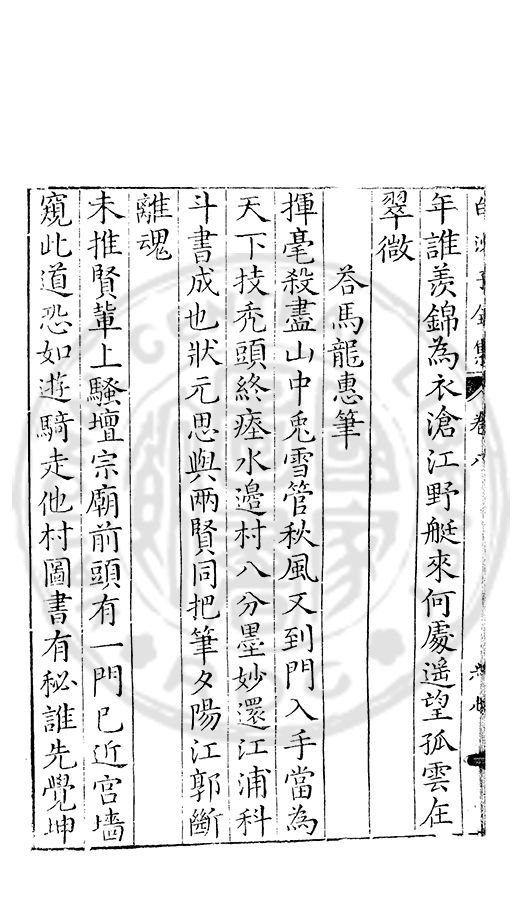 白沙子全集 卷八
年誰羨錦為衣滄江野艇來何處遥望孤雲在
翠微
荅馬龍惠筆
揮毫殺盡山中兎雪管秋風又到門入手當為
天下技禿頭終瘞水邊村八分墨妙還江浦科
斗書成也狀元思與兩賢同把筆夕陽江郭斷
離魂
未推賢輩上騷壇宗廟前頭有一門已近宫墻
窺此道恐如遊騎走他村圖書有秘誰先覺坤